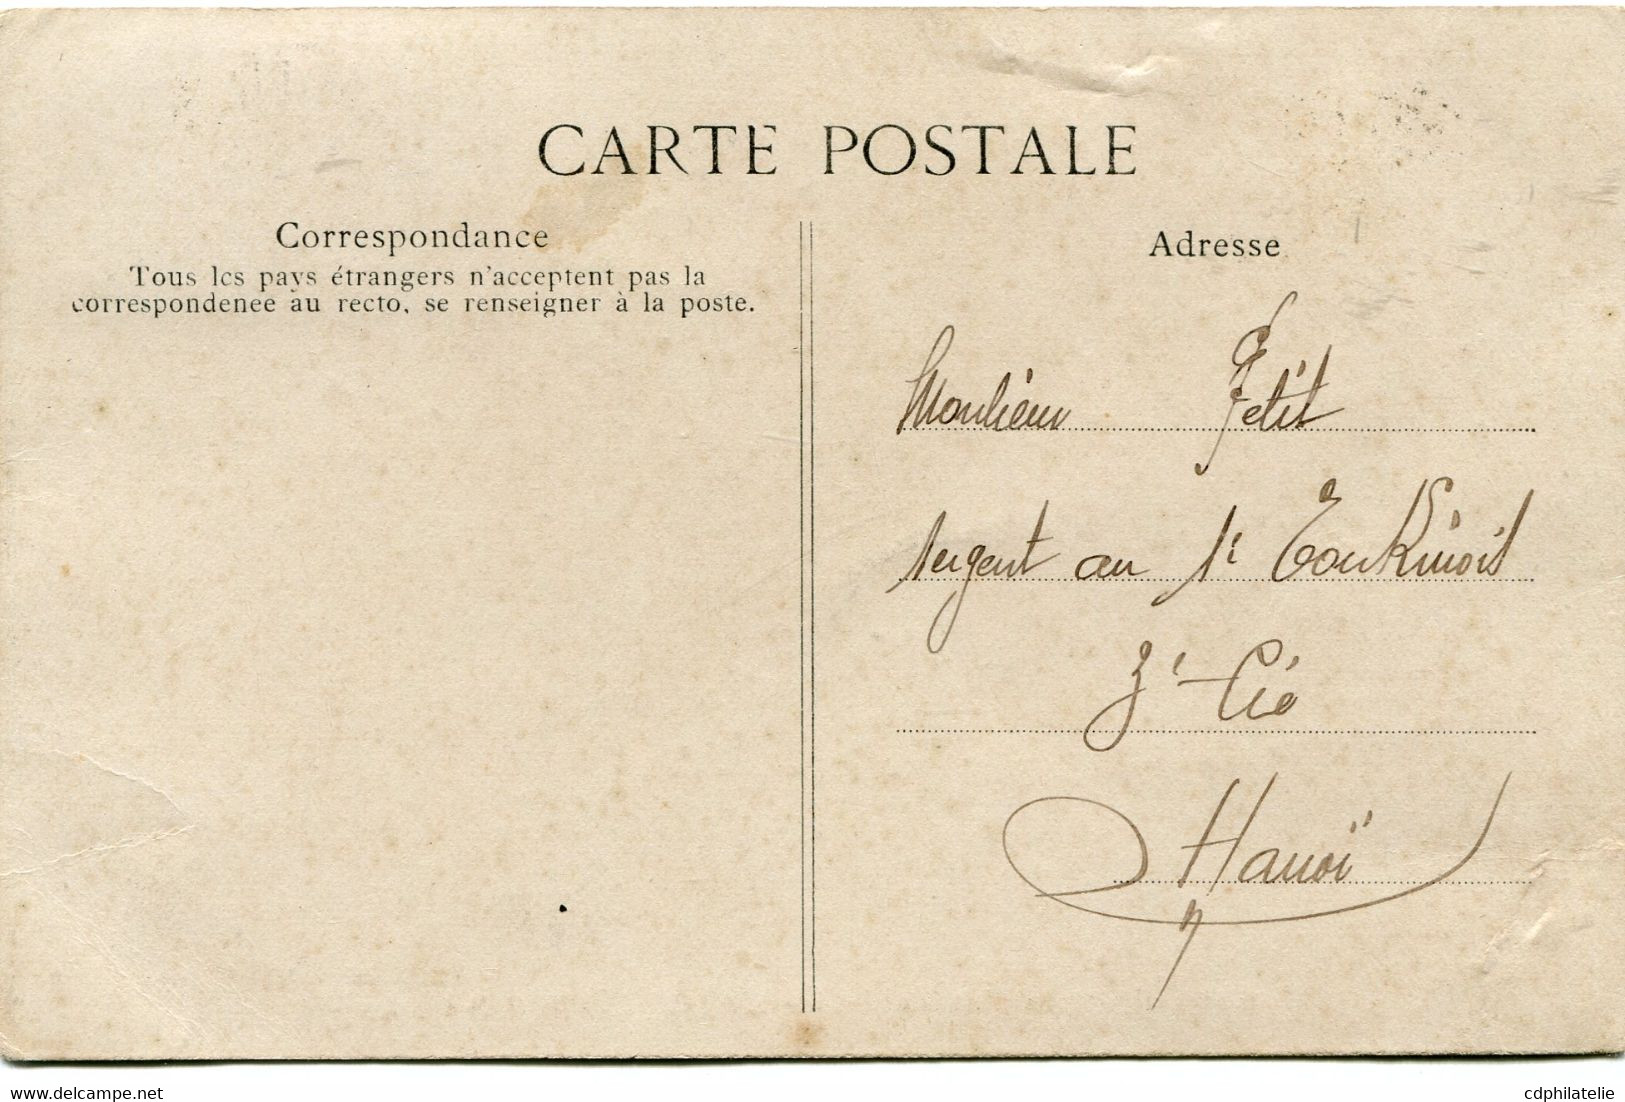 CARTE POSTALE
Correspondance
Tous les pays étrangers n'acceptent pas la
correspondenee au recto, se renseigner à la poste.
Adresse
Monsieur Petit
sergent au 1r Tonkinois
3e Cie
Hanoï
www.delcampe.net
cdphilatelie